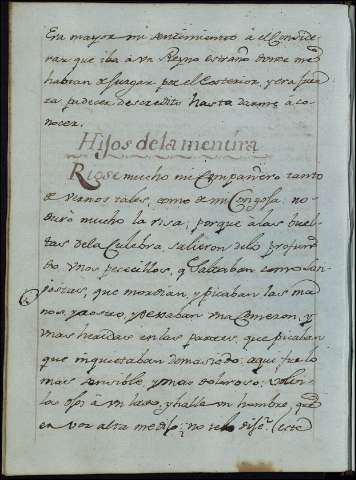 Era mayor mi sentimiento à el Conside-
rar que iba à vn Reyno estraño donde me
habian de juzgar por el exterior, y era fuer
za padecer descredito hasta darme à co-
nocer.
Hijos de la mentira
Riose mucho mi Compañero tanto
de vernos tales, como de mi Congoja, no
durò mucho la risa; porque à las buel-
tas de la Culebra, salieron de lo profun
do, vnos pececillos, q saltaban como lan
gostas, que mordian, y picaban las ma
nos, y rostro, y dexaban vna Comezon, y
mas heridas en las partes, que picaban
que inquietaban demasiado: aqui fue lo
mas sensible, y mas doloroso: volvi
los ojos à vn lado, y halle vn hombre, que
en voz alta me dijo; no telo dije? (este